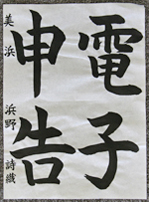 電子
申告
美浜 浜野 詩織